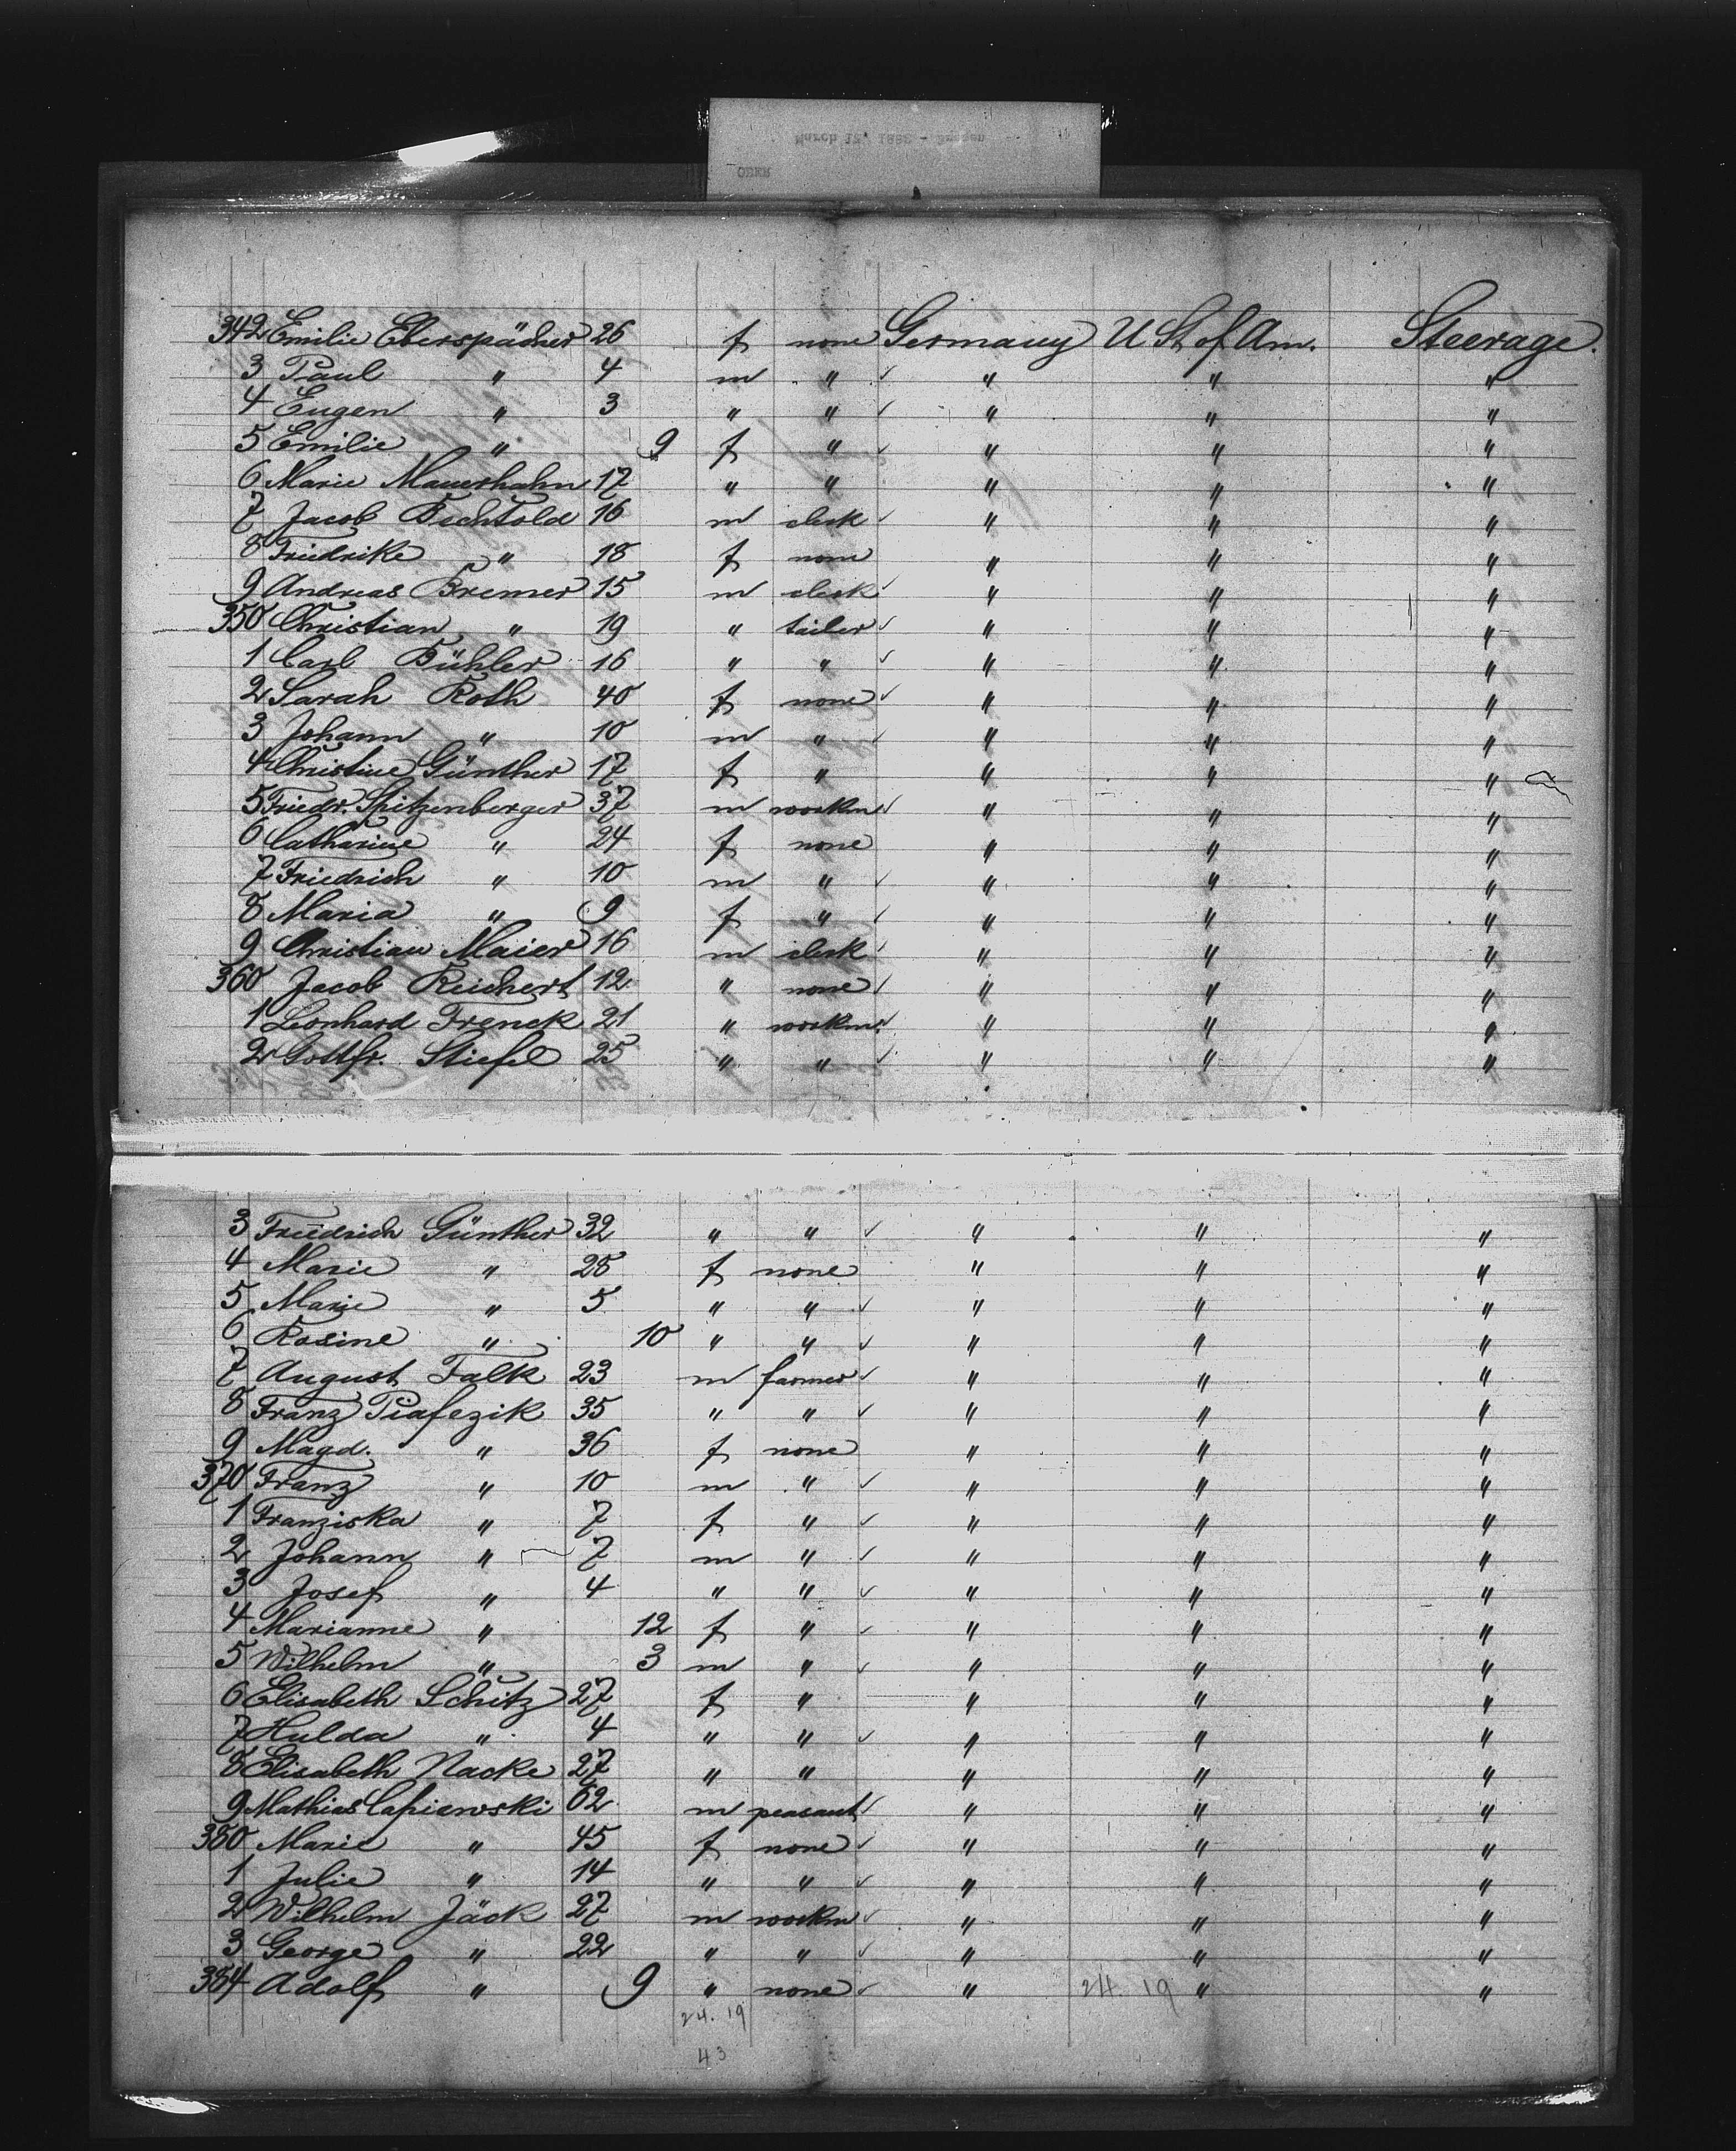 March 17, 1883 - Bremen
ODER
342 Emilie Eberspächer 26 f none Germany U St of Am. Steerage.
3 Paul " 4 m " " " "
4 Eugen " 3 " " " " "
5 Emilie " 9 f " " " "
6 Marie Mauerhahn 17 " " " " "
7 Jacob Bechtold 16 m clerk " " "
8 Friedrike " 18 f none " " "
9 Andreas Bremer 15 m clerk " " "
350 Christian " 19 " tailer " " "
1 Carl Bühler 16 " " " " "
2 Sarah Roth 40 f none " " "
3 Johann " 10 m " " " "
4 Christine Günther 17 f " " " "
5 Frieder. Spitzenberger 37 m workm. " " "
6 Catharine " 24 f none " " "
7 Friedrich " 10 m " " " "
8 Maria " 9 f " " " "
9 Christian Maier 16 m clerk " " "
360 Jacob Reichert 12 " none " " "
1 Leonhard Frenck 21 " workm. " " "
2 Gottfr. Stiefel 25 " " " " "
3 Friedrich Günther 32 " " " " "
4 Marie " 28 f none " " "
5 Marie " 5 " " " " "
6 Rosine " 10 " " " " "
7 August Falk 23 m farmer " " "
8 Franz Piafezik 35 " " " " "
9 Magd. " 36 f none " " "
370 Franz " 10 m " " " "
1 Franziska " 7 f " " " "
2 Johann " 7 m " " " "
3 Josef " 4 " " " " "
4 Marianne " 12 f " " " "
5 Wilhelm " 3 m " " " "
6 Elisabeth Schitz 27 f " " " "
7 Hulda " 4 " " " " "
8 Elisabeth Nacke 27 " " " " "
9 Mathias Capiewski 62 m peasant " " "
380 Marie " 45 f none " " "
1 Julie " 14 " " " " "
2 Wilhelm Jäck 27 m workm " " "
3 George " 22 " " " " "
384 Adolf " 9 " none " 24. 19 " "
24. 19
43